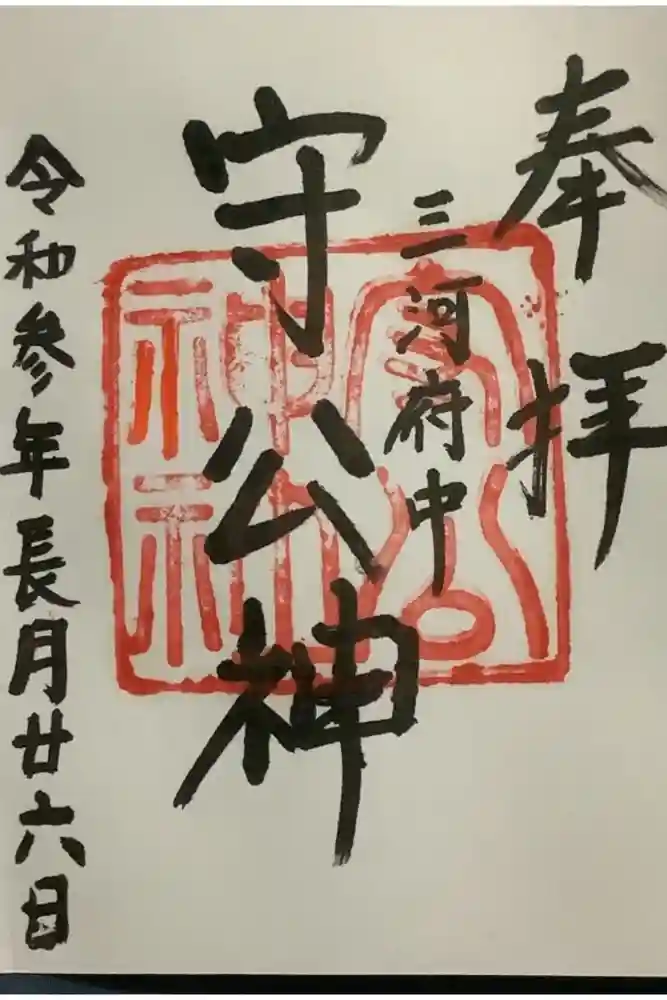 奉拝
三河府中
守公神
令和参年長月廿六日
守公神社